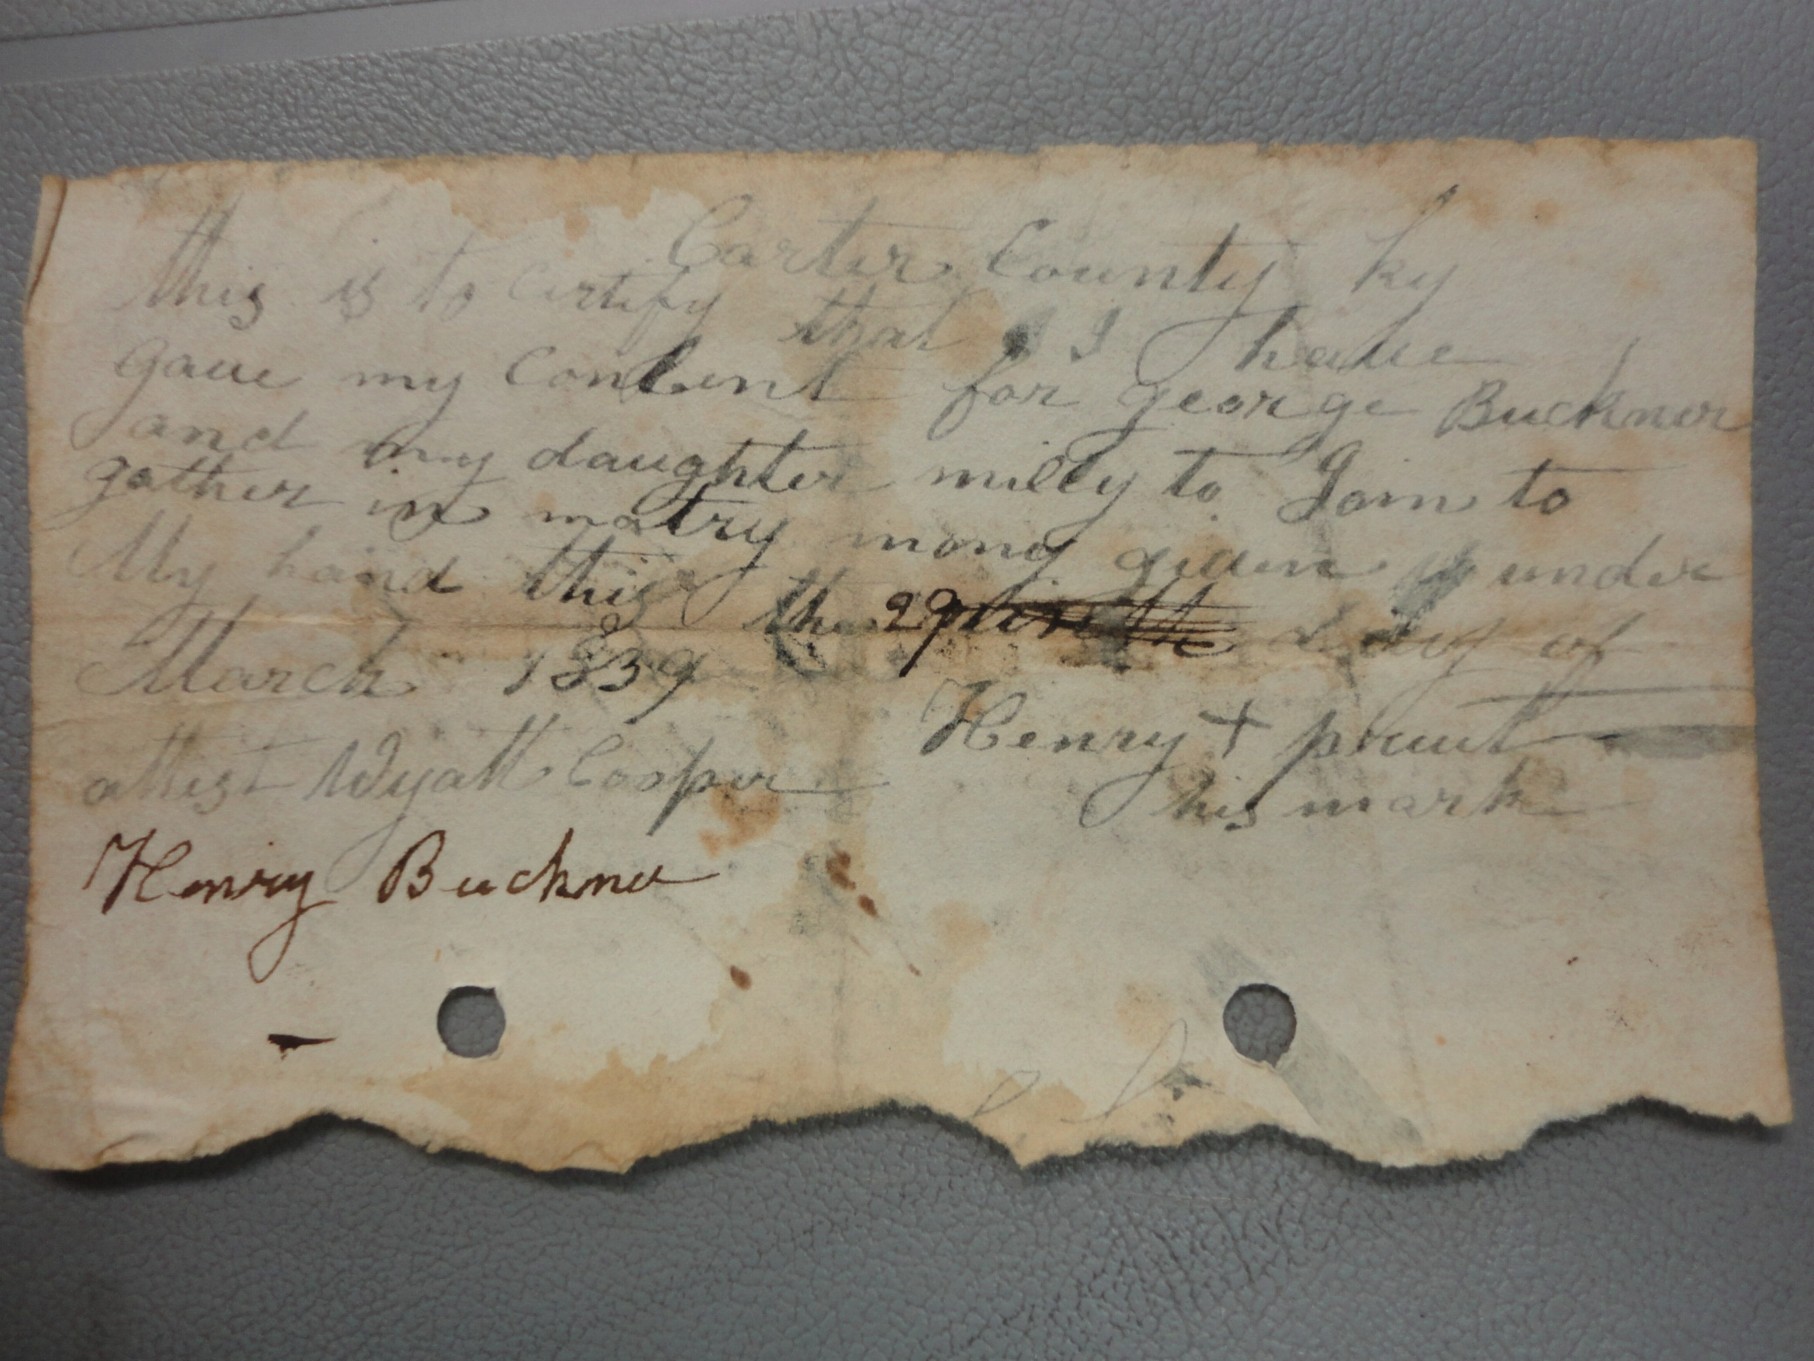 Carter County ky
this is to certify that I have
gave my Consent for george Buckner
and my daughter milly to Join to
gather in matry mony given under
My hand this the 29 day of
March 1839
Henry + pruit
his mark
attest Wyatt Cooper
Henry Buckner